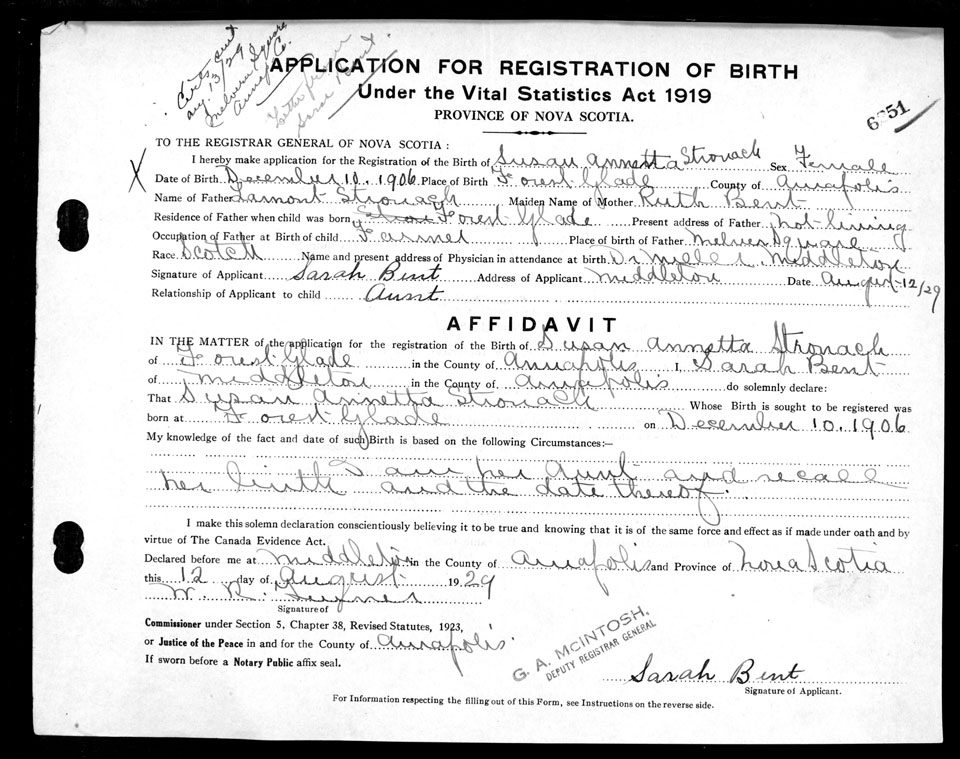 Certs. sent
Aug. 13/29
Melvern Square
Annap. Co.
Letter from
Sara Bent
APPLICATION FOR REGISTRATION OF BIRTH
Under the Vital Statistics Act 1919
PROVINCE OF NOVA SCOTIA.
6851
TO THE REGISTRAR GENERAL OF NOVA SCOTIA :
I hereby make application for the Registration of the Birth of Susan Annetta Stronach Sex Female
X Date of Birth December 10, 1906 Place of Birth Forest Glade County of Annapolis
Name of Father Lamont Stronach Maiden Name of Mother Ruth Bent
Residence of Father when child was born Forest Glade Present address of Father not living
Occupation of Father at Birth of child Farmer Place of birth of Father Melvern Square
Race Scotch Name and present address of Physician in attendance at birth Dr Miller Middleton
Signature of Applicant Sarah Bent Address of Applicant Middleton Date August 12/29
Relationship of Applicant to child Aunt
AFFIDAVIT
IN THE MATTER of the application for the registration of the Birth of Susan Annetta Stronach
of Forest Glade in the County of Annapolis I, Sarah Bent
of Middleton in the County of Annapolis do solemnly declare:
That Susan Annetta Stronach Whose Birth is sought to be registered was
born at Forest Glade on December 10, 1906
My knowledge of the fact and date of such Birth is based on the following Circumstances:—
I am her Aunt and recall
her birth and the date thereof.
I make this solemn declaration conscientiously believing it to be true and knowing that it is of the same force and effect as if made under oath and by
virtue of The Canada Evidence Act.
Declared before me at Middleton in the County of Annapolis and Province of Nova Scotia
this 12 day of August 1929
W. R.
Signature of
Commissioner under Section 5, Chapter 38, Revised Statutes, 1923,
or Justice of the Peace in and for the County of Annapolis
If sworn before a Notary Public affix seal.
G. A. MCINTOSH,
DEPUTY REGISTRAR GENERAL
Sarah Bent
Signature of Applicant.
For Information respecting the filling out of this Form, see Instructions on the reverse side.